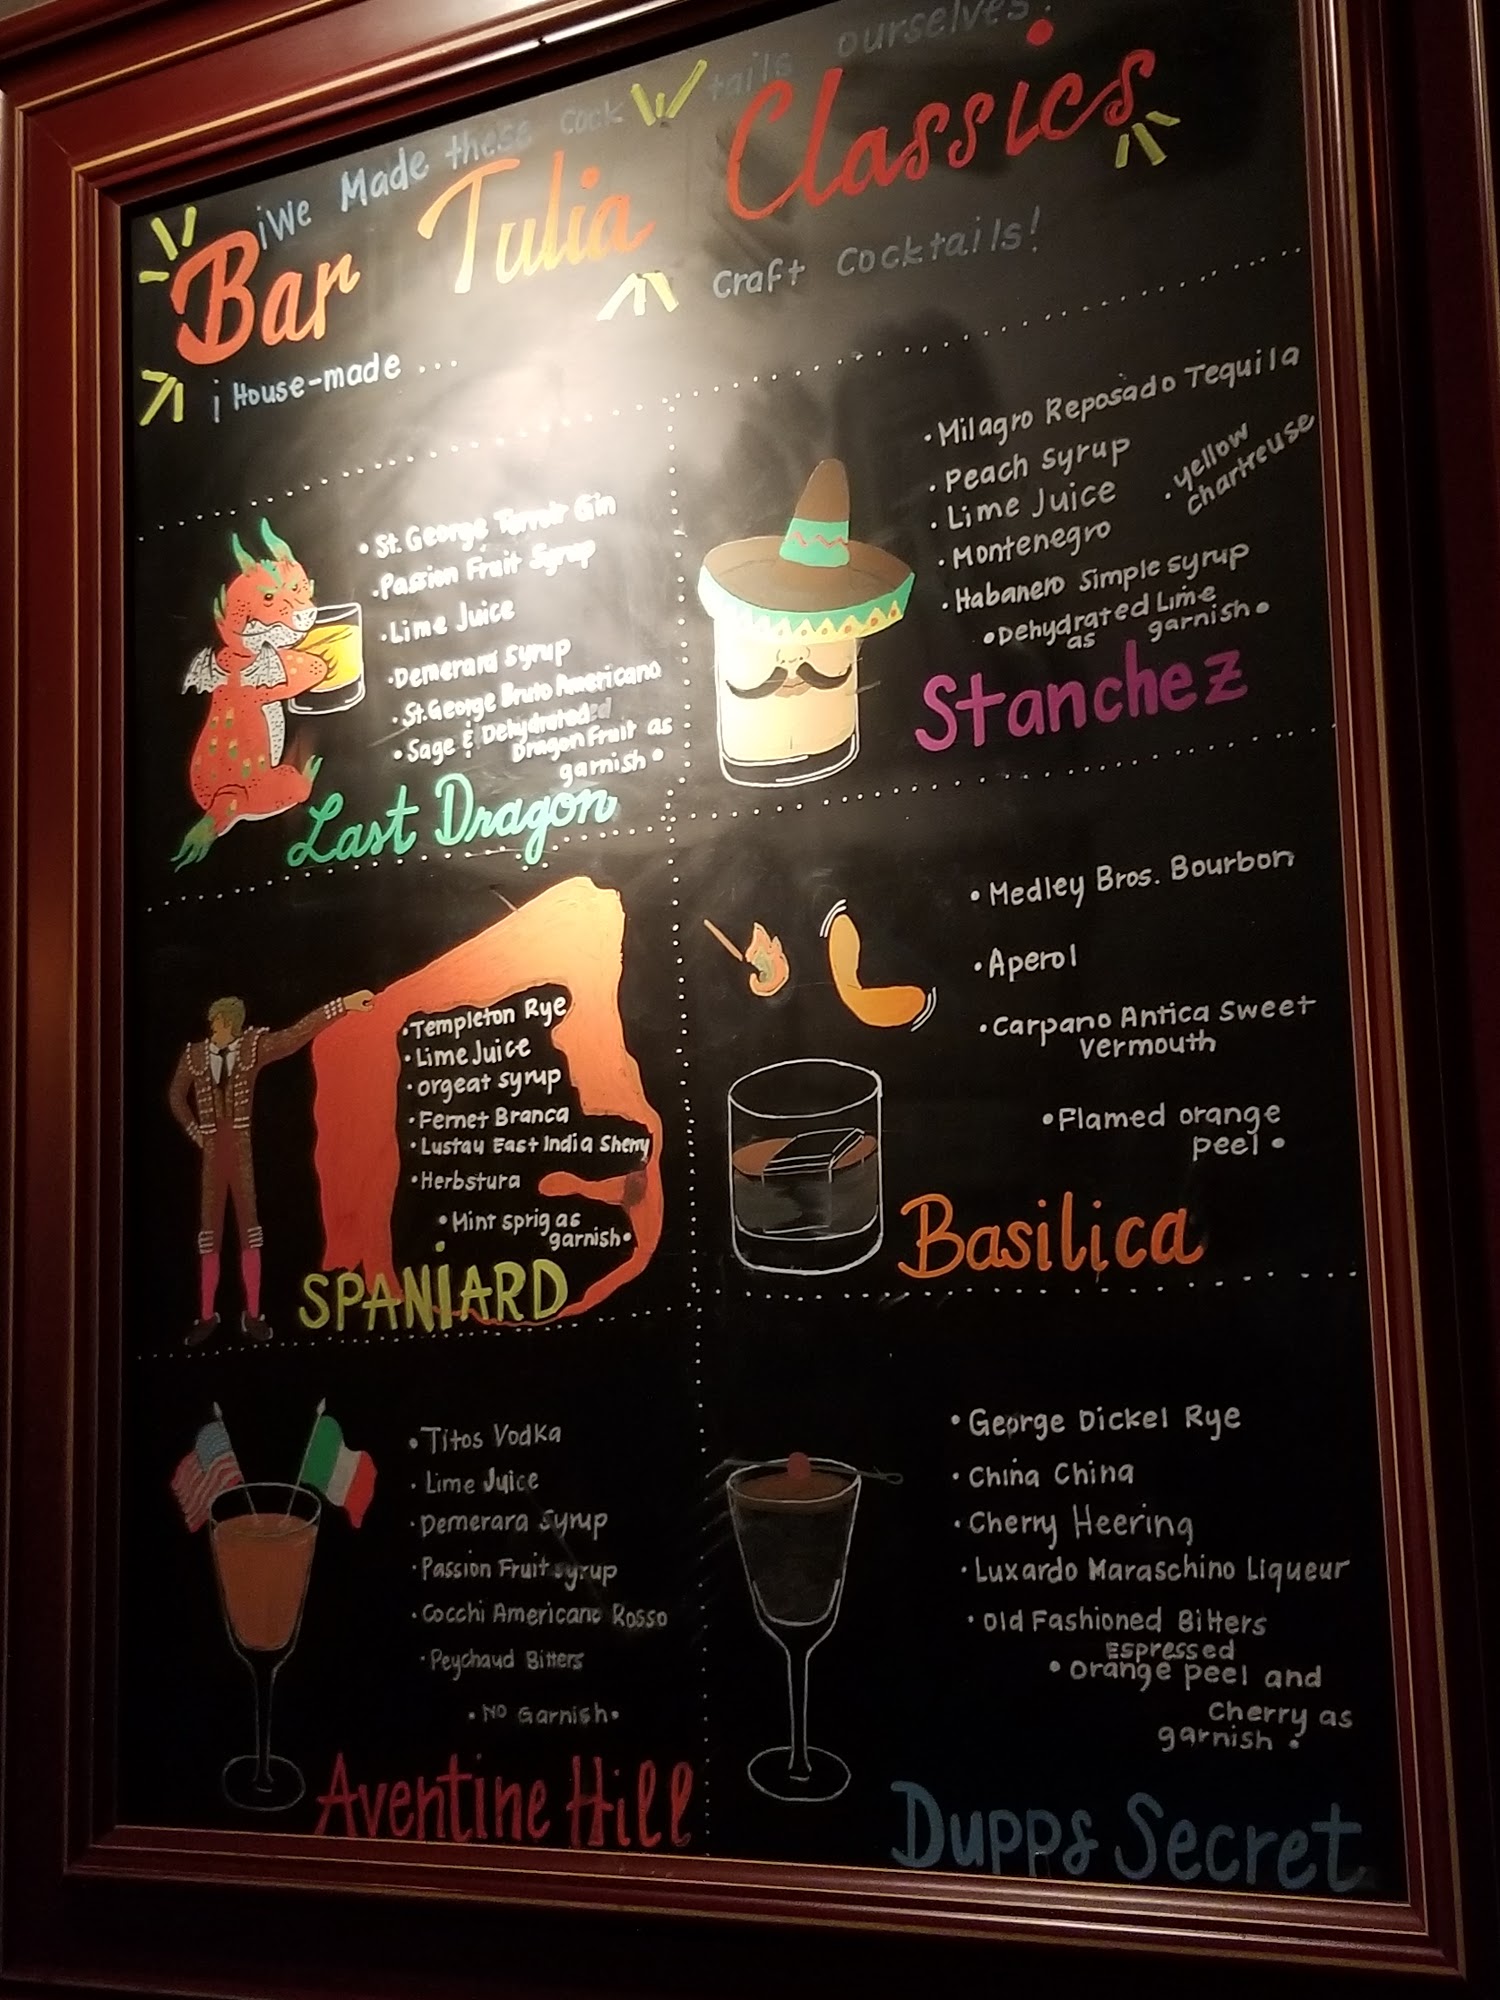 ¡We Made these cocktails ourselves!
Bar Tulia Classics
¡House-made ... Craft Cocktails!
• St. George Terroir Gin
• Passion Fruit Syrup
• Lime Juice
• Demerara Syrup
• St. George Bruto Americano
• Sage & Dehydrated
Dragon Fruit as
garnish •
Last Dragon
• Milagro Reposado Tequila
• Peach Syrup
• Lime Juice
• yellow
chartreuse
• Montenegro
• Habanero Simple Syrup
• Dehydrated Lime
as garnish •
Stanchez
• Templeton Rye
• Lime Juice
• orgeat syrup
• Fernet Branca
• Lustau East India Sherry
• Herbstura
• Mint sprig as
garnish •
SPANiARD
• Medley Bros. Bourbon
• Aperol
• Carpano Antica Sweet
Vermouth
• Flamed orange
peel •
Basilica
• Titos Vodka
• Lime Juice
• Demerara Syrup
• Passion Fruit syrup
• Cocchi Americano Rosso
• Peychaud Bitters
• No Garnish •
Aventine Hill
• George Dickel Rye
• China China
• Cherry Heering
• Luxardo Maraschino Liqueur
• Old Fashioned Bitters
Espressed
• orange peel and
Cherry as
garnish •
Dupps Secret